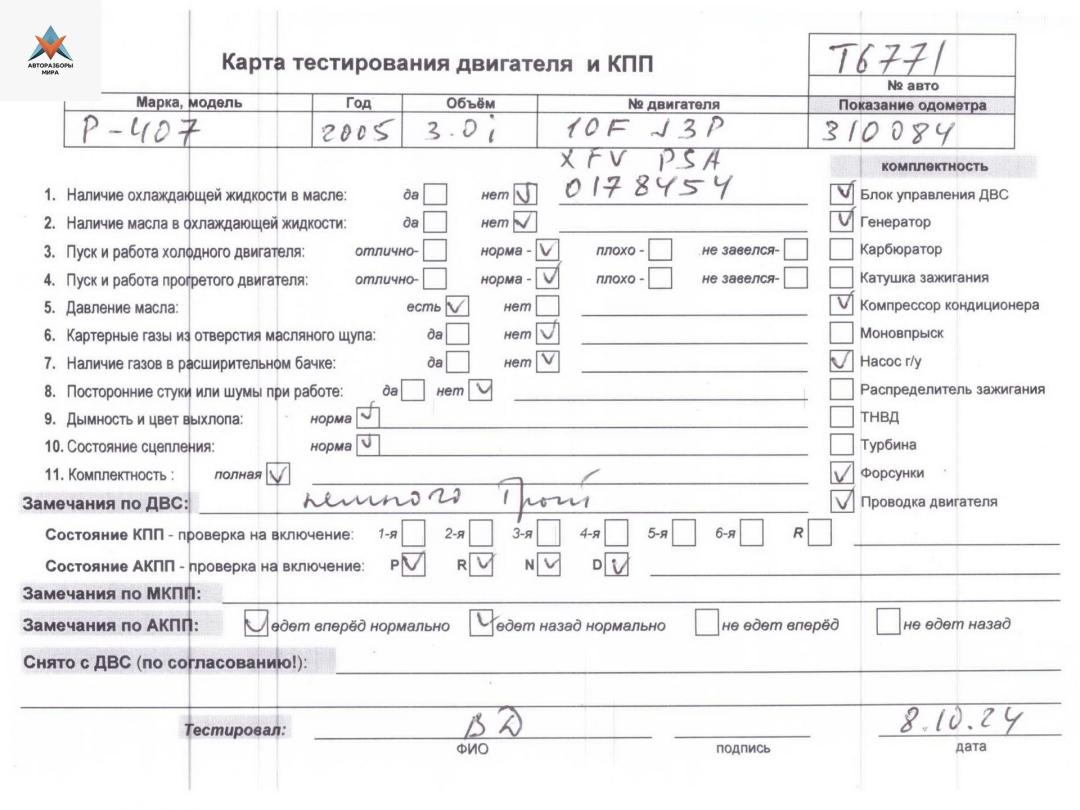 АВТОРАЗБОРЫ
МИРА
Карта тестирования двигателя и КПП
T6771
№ авто
Марка, модель Год Объём № двигателя Показание одометра
P-407 2005 3.0i 10F J3P 310084
XFV PSA
0178454
комплектность
1. Наличие охлаждающей жидкости в масле: да нет Блок управления ДВС
2. Наличие масла в охлаждающей жидкости: да нет Генератор
3. Пуск и работа холодного двигателя: отлично- норма - плохо - не завелся- Карбюратор
4. Пуск и работа прогретого двигателя: отлично- норма - плохо - не завелся- Катушка зажигания
5. Давление масла: есть нет Компрессор кондиционера
6. Картерные газы из отверстия масляного щупа: да нет Моновпрыск
7. Наличие газов в расширительном бачке: да нет Насос г/у
8. Посторонние стуки или шумы при работе: да нет Распределитель зажигания
9. Дымность и цвет выхлопа: норма ТНВД
10. Состояние сцепления: норма Турбина
11. Комплектность : полная Форсунки
Замечания по ДВС: немного Троит Проводка двигателя
Состояние КПП - проверка на включение: 1-я 2-я 3-я 4-я 5-я 6-я R
Состояние АКПП - проверка на включение: P R N D
Замечания по МКПП:
Замечания по АКПП: едет вперёд нормально едет назад нормально не едет вперёд не едет назад
Снято с ДВС (по согласованию!):
Тестировал: ВД 8.10.24
ФИО подпись дата